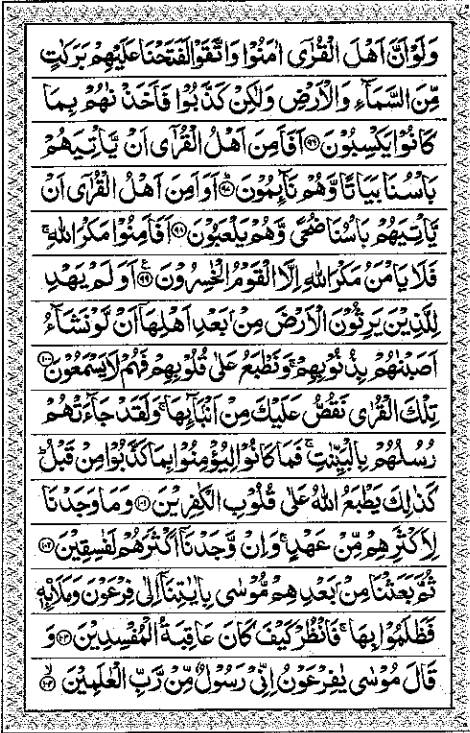 وَلَوْ اَنَّ اَهْلَ الْقُرٰٓى اٰمَنُوْا وَاتَّقَوْا لَفَتَحْنَا عَلَيْهِمْ بَرَكٰتٍ
مِّنَ السَّمَآءِ وَالْاَرْضِ وَلٰكِنْ كَذَّبُوْا فَاَخَذْنٰهُمْ بِمَا
كَانُوْا يَكْسِبُوْنَ ﴿۹۶﴾ اَفَاَمِنَ اَهْلُ الْقُرٰٓى اَنْ يَّاْتِيَهُمْ
بَاْسُنَا بَيَاتًا وَّهُمْ نَآئِمُوْنَ ﴿۹۷﴾ اَوَاَمِنَ اَهْلُ الْقُرٰٓى اَنْ
يَّاْتِيَهُمْ بَاْسُنَا ضُحًى وَّهُمْ يَلْعَبُوْنَ ﴿۹۸﴾ اَفَاَمِنُوْا مَكْرَ اللّٰهِ ۚ
فَلَا يَاْمَنُ مَكْرَ اللّٰهِ اِلَّا الْقَوْمُ الْخٰسِرُوْنَ ﴿۹۹﴾ اَوَلَمْ يَهْدِ
لِلَّذِيْنَ يَرِثُوْنَ الْاَرْضَ مِنْۢ بَعْدِ اَهْلِهَآ اَنْ لَّوْ نَشَآءُ
اَصَبْنٰهُمْ بِذُنُوْبِهِمْ ۚ وَنَطْبَعُ عَلٰى قُلُوْبِهِمْ فَهُمْ لَا يَسْمَعُوْنَ ﴿۱۰۰﴾
تِلْكَ الْقُرٰى نَقُصُّ عَلَيْكَ مِنْ اَنْۢبَآئِهَا ۚ وَلَقَدْ جَآءَتْهُمْ
رُسُلُهُمْ بِالْبَيِّنٰتِ ۚ فَمَا كَانُوْا لِيُؤْمِنُوْا بِمَا كَذَّبُوْا مِنْ قَبْلُ ؕ
كَذٰلِكَ يَطْبَعُ اللّٰهُ عَلٰى قُلُوْبِ الْكٰفِرِيْنَ ﴿۱۰۱﴾ وَمَا وَجَدْنَا
لِاَكْثَرِهِمْ مِّنْ عَهْدٍ ۚ وَاِنْ وَّجَدْنَآ اَكْثَرَهُمْ لَفٰسِقِيْنَ ﴿۱۰۲﴾
ثُمَّ بَعَثْنَا مِنْۢ بَعْدِهِمْ مُّوْسٰى بِاٰيٰتِنَآ اِلٰى فِرْعَوْنَ وَمَلَا۟ئِهٖ
فَظَلَمُوْا بِهَا ۚ فَانْظُرْ كَيْفَ كَانَ عَاقِبَةُ الْمُفْسِدِيْنَ ﴿۱۰۳﴾ وَ
قَالَ مُوْسٰى يٰفِرْعَوْنُ اِنِّيْ رَسُوْلٌ مِّنْ رَّبِّ الْعٰلَمِيْنَ ﴿۱۰۴﴾ ۙ